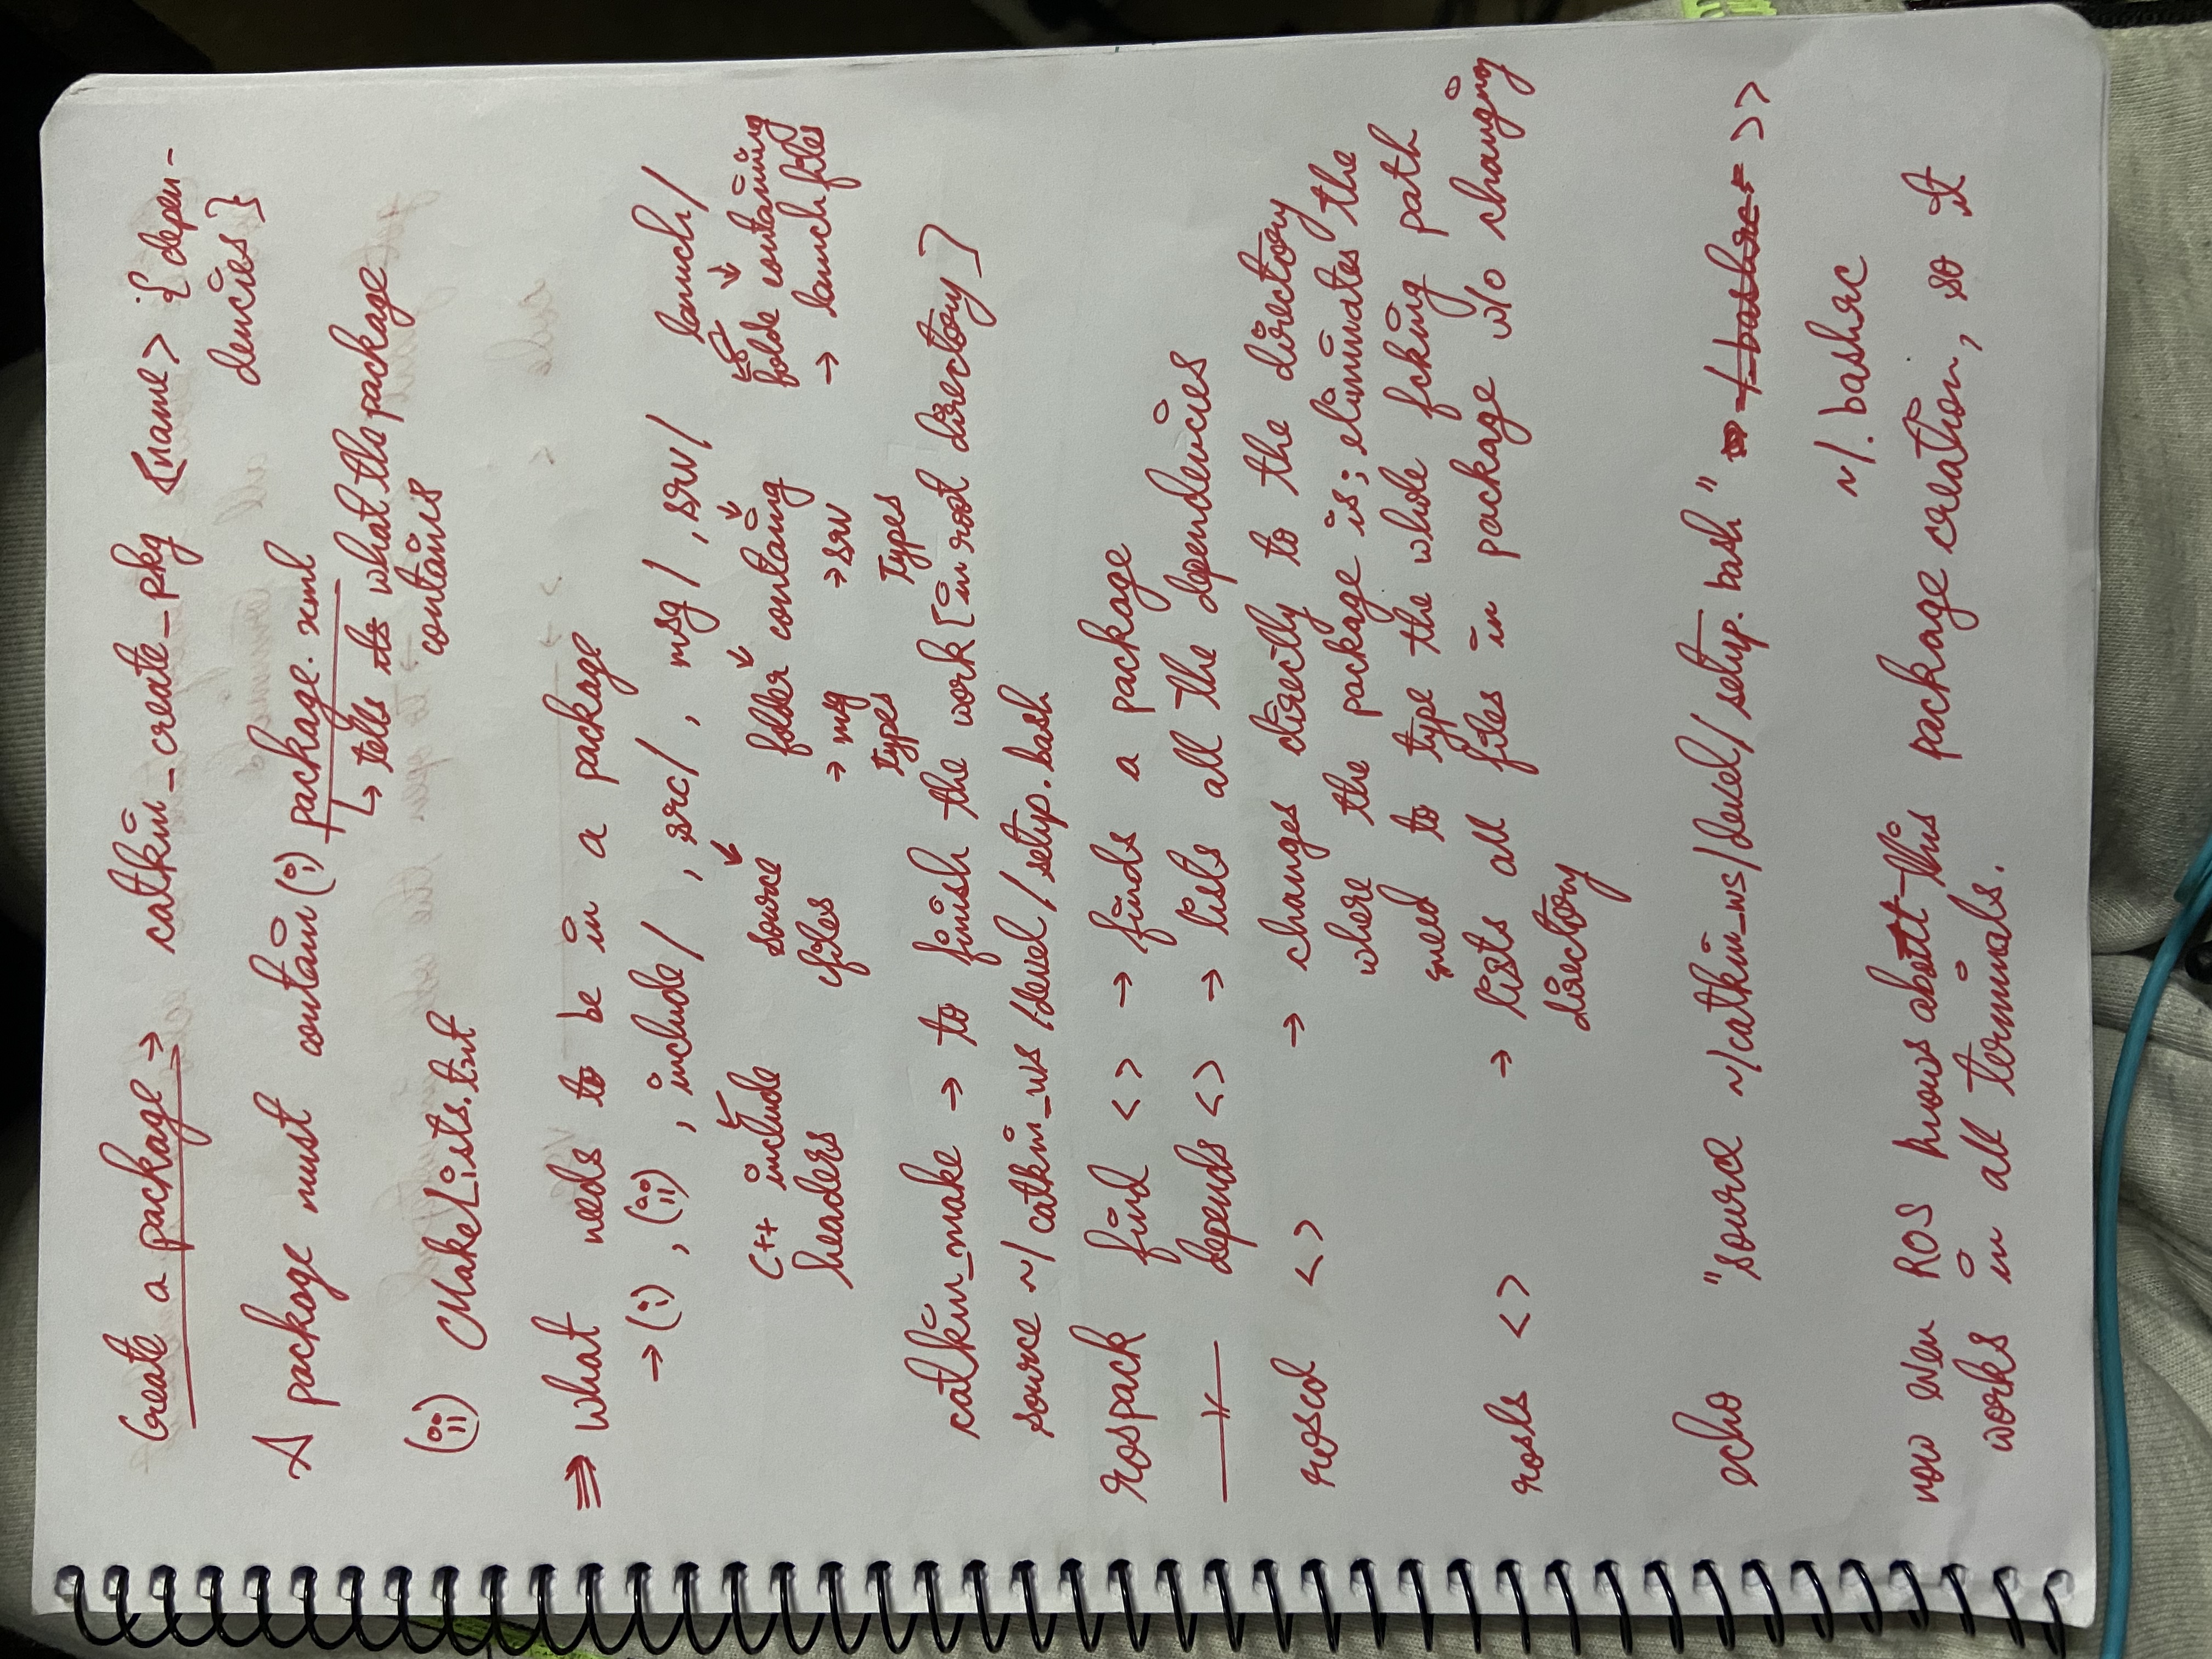 Create a package → catkin_create_pkg <name> {depen-
dencies}
A package must contain (i) package.xml
↳ tells its what the package
contains
(ii) CMakeLists.txt
⇒ What needs to be in a package
→ (i), (ii), include/, src/, msg/, srv/ launch/
C++ include source folder containg folde containing
headers files → msg → srv → launch files
types types
catkin_make → to finish the work [in root directory]
source ~/catkin_ws/devel/setup.bash
rospack find <> → finds a package
—〃— depends <> → lists all the dependencies
roscd <> → changes directly to the directory
where the package is; eliminates the
need to type the whole fcking path
rosls <> → lists all files in package w/o changing
directory
echo "source ~/catkin_ws/devel/setup.bash" /.bashrc >>
~/.bashrc
now even ROS knows about this package creation, so it
works in all terminals.